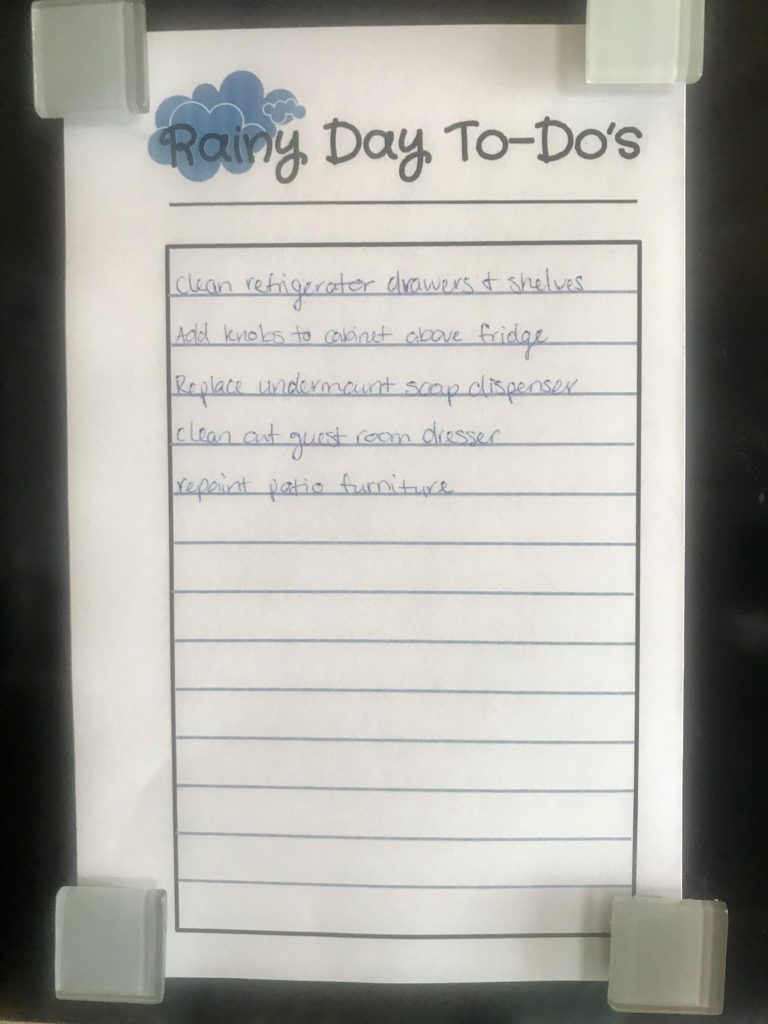 Rainy Day To-Do's
Clean refrigerator drawers & shelves
Add knobs to cabinet above fridge
Replace undermount soap dispenser
clean out guest room dresser
repaint patio furniture